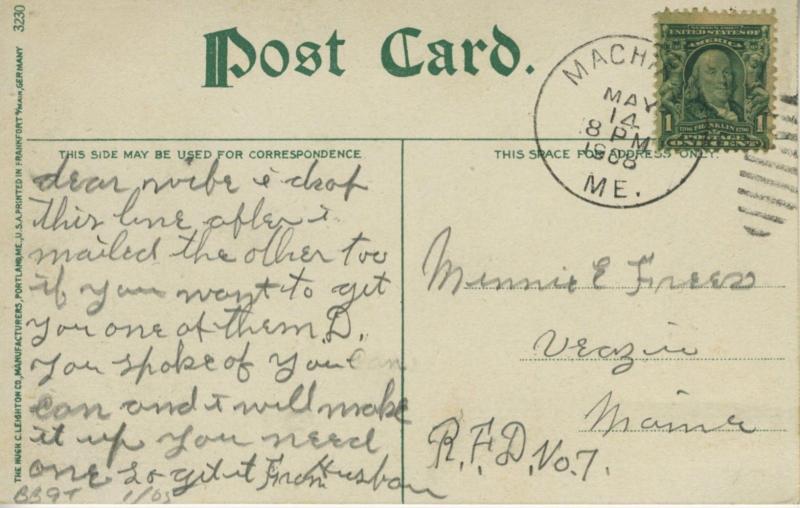 3230
THE HUGH C. LEIGHTON CO., MANUFACTURERS, PORTLAND, ME., U.S.A. PRINTED IN FRANKFORT a/MAIN, GERMANY
Post Card.
THIS SIDE MAY BE USED FOR CORRESPONDENCE
THIS SPACE FOR ADDRESS ONLY.
UNITED STATES OF
AMERICA
1 FRANKLIN 1
POSTAGE
ONE CENT
MACHI
MAY
14
8 PM
1908
ME.
dear wife i drop
this line after i
mailed the other too
if you want to get
you one of them D.
you spoke of you can
can and i will make
it up you need
one so get it From Husban
Minnie E Frees
Veazie
Maine
R.F.D. No. 7.
BB97 1/05